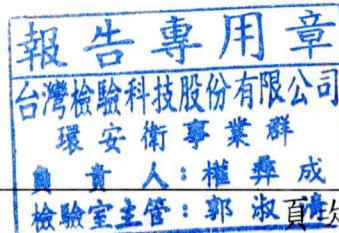 報告專用章
台灣檢驗科技股份有限公司
環安衛事業群
負責人：權彝成
檢驗室主管：郭淑清
頁次